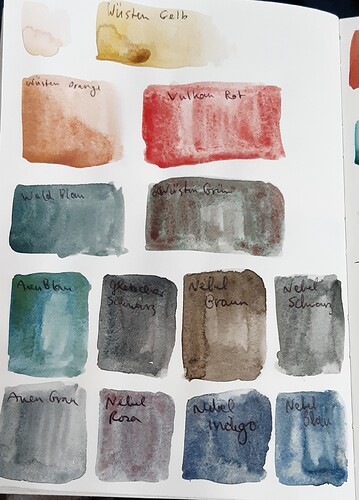 Wüsten Gelb
Wüsten Orange
Vulkan Rot
Wald Blau
Wüsten Grün
Auen Blau
Gletscher
Schwarz
Nebel
Braun
Nebel
Schwarz
Auen Grau
Nebel
Rosa
Nebel
Indigo
Nebel
Blau